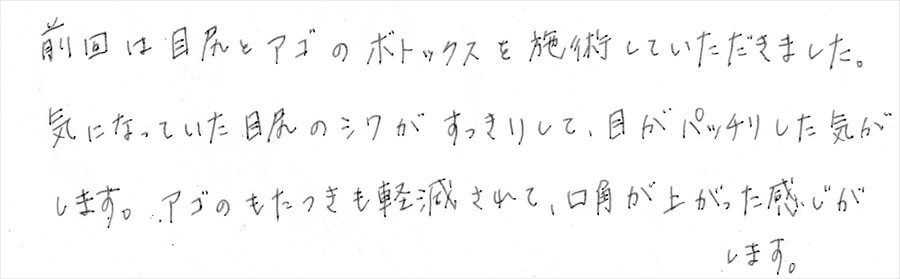 前回は目尻とアゴのボトックスを施術していただきました。
気になっていた目尻のシワがすっきりして、目がパッチリした気が
します。アゴのもたつきも軽減されて、口角が上がった感じが
します。